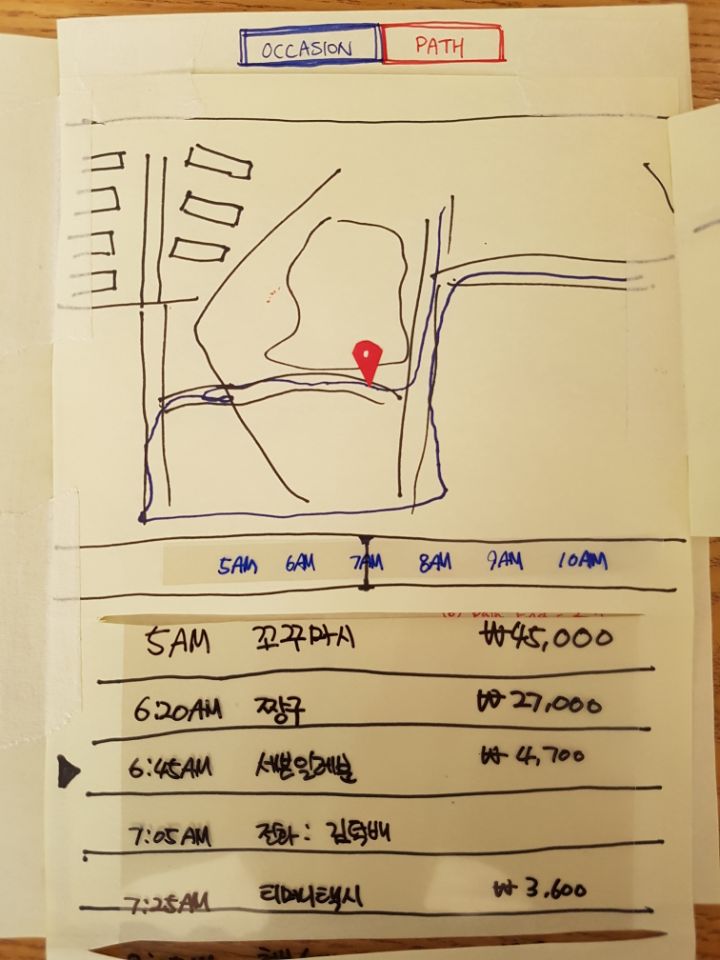 OCCASION PATH
5AM 6AM 7AM 8AM 9AM 10AM
5AM 꼬꾸마시 ₩45,000
6:20AM 짱구 ₩27,000
6:45AM 세븐일레븐 ₩4,700
7:05AM 전화: 김탁배
7:25AM 티머니택시 ₩3,600